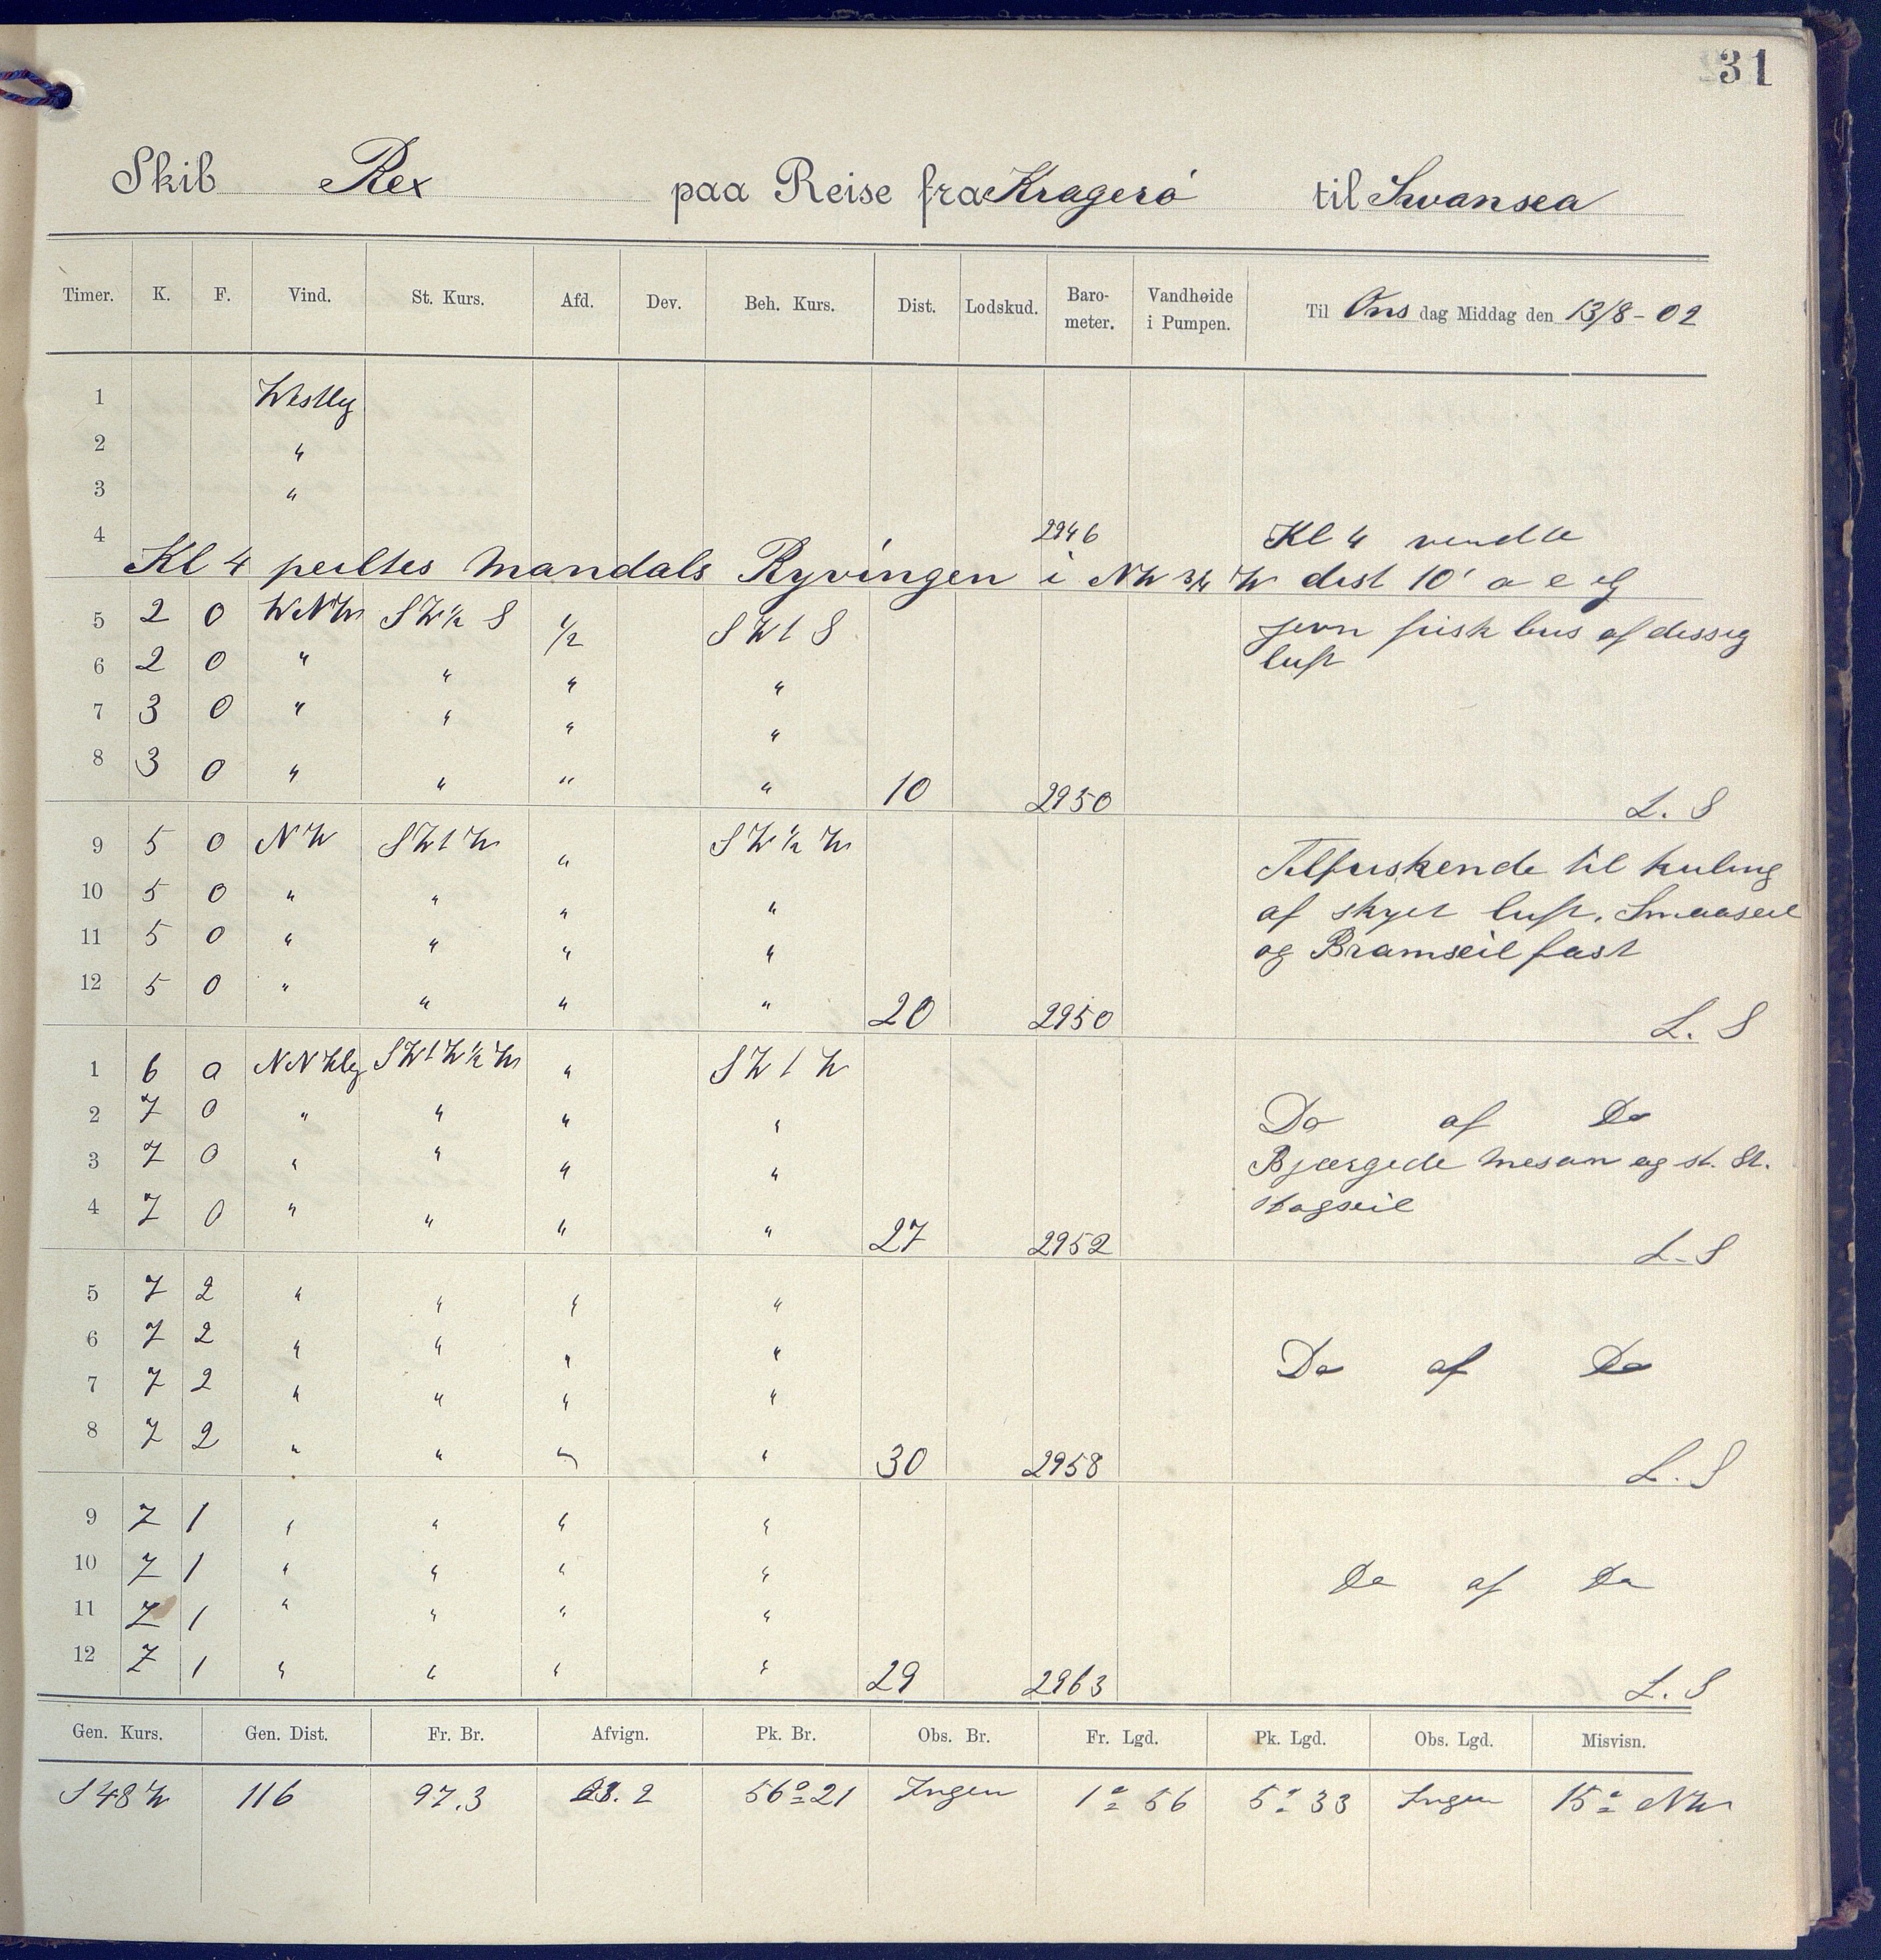 31
Skib Rex paa Reise fra Kragerø til Swansea
Timer. K. F. Vind. St. Kurs. Afd. Dev. Beh. Kurs. Dist. Lodskud. Baro-meter. Vandhøide i Pumpen. Til Ons dag Middag den 13/8 - 02
1 Westlig
2 "
3 "
4 2946 Kl 4 vendte
Kl 4 peiltes Mandals Ryvingen i NW 3/4 W dist 10'
5 2 0 WNW SW½ S ½ SW t S jevn frisk bris af dissig
6 2 0 " " " " luft
7 3 0 " " " "
8 3 0 " " " " 10 2950 L. S
9 5 0 NW SW t W " SW ½ W Tilfriskende til kuling
10 5 0 " " " " af skyet luft. Smaaseil
11 5 0 " " " " og Bramseil fast
12 5 0 " " " " 20 2950 L. S
1 6 0 NNWlig SW t W ½ W " SW t W
2 7 0 " " " " Do af Do
3 7 0 " " " " Bjærgede Mesan og st. St.
4 7 0 " " " " 27 2952 stagseil
L. S
5 7 2 " " " "
6 7 2 " " " " Do af Do
7 7 2 " " " "
8 7 2 " " " " 30 2958 L. S
9 7 1 " " " "
10 7 1 " " " " Do af Do
11 7 1 " " " "
12 7 1 " " " " 29 2963 L. S
Gen. Kurs. Gen. Dist. Fr. Br. Afvign. Pk. Br. Obs. Br. Fr. Lgd. Pk. Lgd. Obs. Lgd. Misvisn.
S 48 W 116 97.3 2 56° 21 Ingen 1° 56 5° 33 Ingen 15° NW